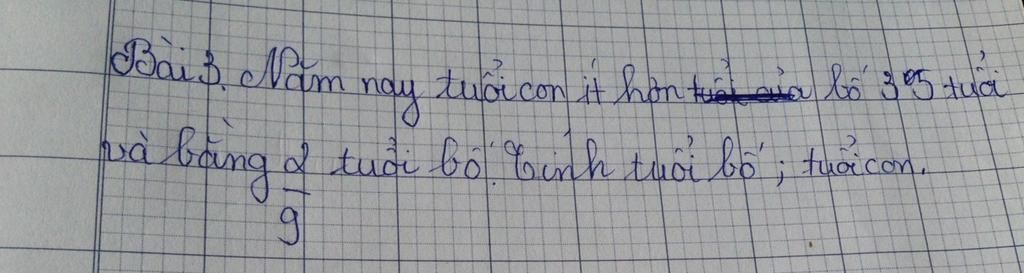 Bài 3. Năm nay tuổi con ít hơn tuổi của bố 35 tuổi
và bằng 2/9 tuổi bố. Tính tuổi bố; tuổi con.